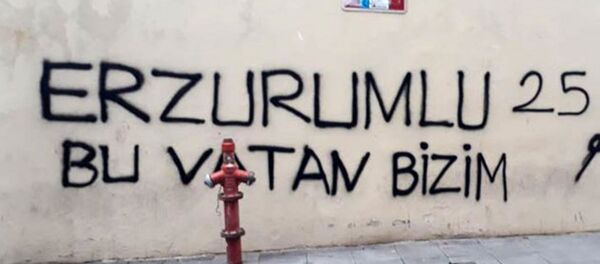 ERZURUMLU 25
BU VATAN BİZİM